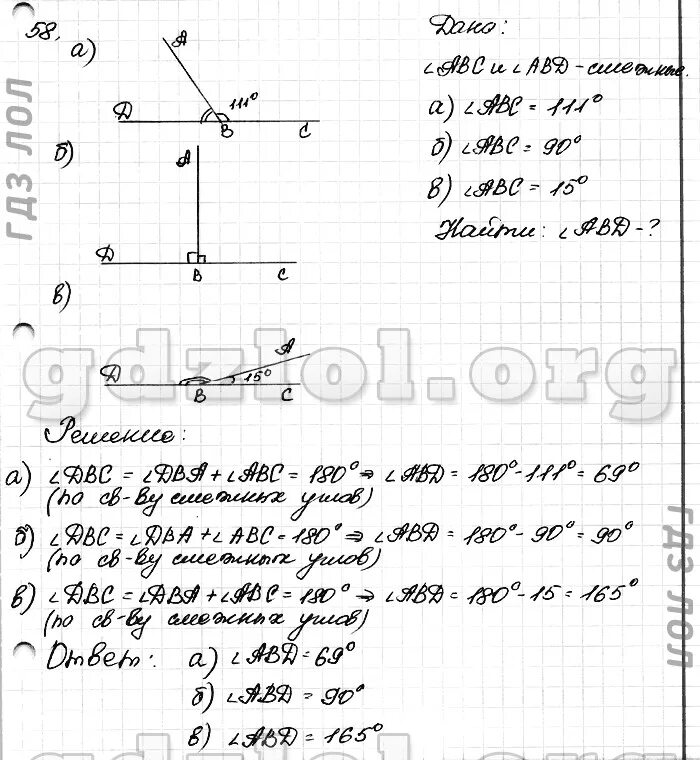 58.
а)
A
111°
D
B
C
б)
A
D
B
C
в)
A
15°
D
B
C
Дано:
∠ABC и ∠ABD - смежные.
а) ∠ABC = 111°
б) ∠ABC = 90°
в) ∠ABC = 15°
Найти: ∠ABD - ?
ГДЗ ЛОЛ
gdzlol.org
Решение:
а) ∠DBC = ∠DBA + ∠ABC = 180° ⇒ ∠ABD = 180° - 111° = 69°
(по св-ву смежных углов)
б) ∠DBC = ∠DBA + ∠ABC = 180° ⇒ ∠ABD = 180° - 90° = 90°
(по св-ву смежных углов)
в) ∠DBC = ∠DBA + ∠ABC = 180° ⇒ ∠ABD = 180° - 15 = 165°
(по св-ву смежных углов)
ГДЗ ЛОЛ
Ответ: а) ∠ABD = 69°
б) ∠ABD = 90°
в) ∠ABD = 165°
gdzlol.org